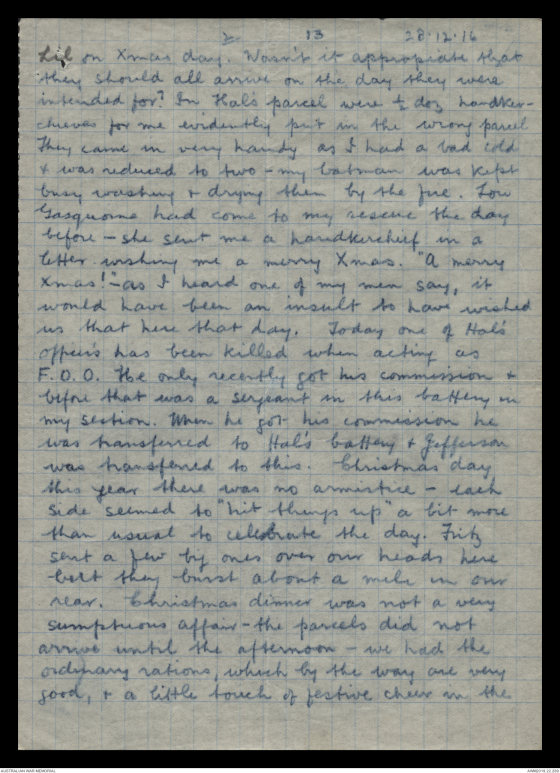 2 13 28.12.16
Lil on Xmas day. Wasn't it appropiate that
they should all arrive on the day they were
intended for? In Hal's parcel were ½ doz handker-
chieves for me evidently put in the wrong parcel
They came in very handy as I had a bad cold
& was reduced to two – my batman was kept
busy washing & drying them by the fire. Low
Gasquoine had come to my rescue the day
before – she sent me a handkercheif in a
letter wishing me a merry Xmas. "A merry
Xmas!" – as I heard one of my men say, it
would have been an insult to have wished
us that here that day. Today one of Hal's
officers has been killed when acting as
F.O.O. He only recently got his commission &
before that was a sergeant in this battery in
my section. When he got his commission he
was transferred to Hal's battery & Jefferson
was transferred to this. Christmas day
this year there was no armistice – each
side seemed to "hit things up" a bit more
than usual to celebrate the day. Fritz
sent a few big ones over our heads here
but they burst about a mile in our
rear. Christmas dinner was not a very
sumptuous affair – the parcels did not
arrive until the afternoon – we had the
ordinary rations, which by the way are very
good, & a little touch of festive cheer in the
AUSTRALIAN WAR MEMORIAL